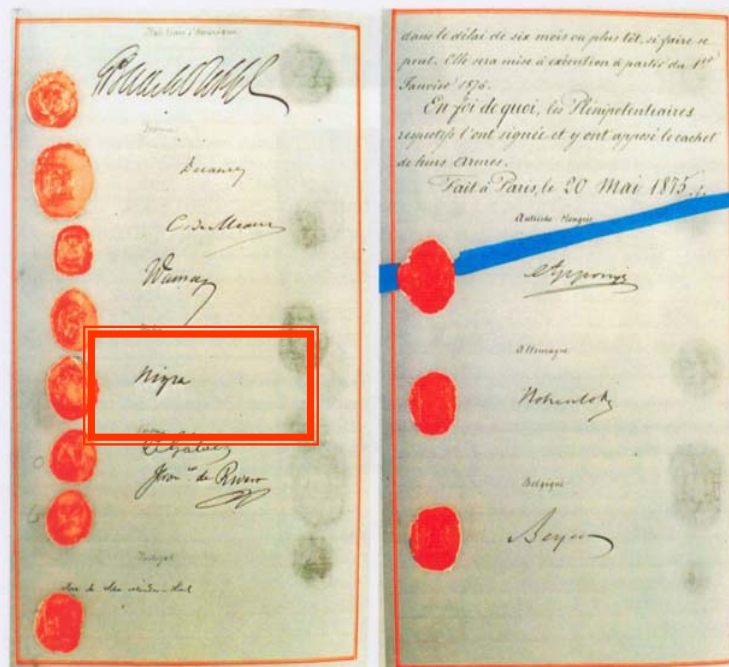 États-Unis d'Amérique
France
Decazes
C. de Meaux
Nigra
de Rivero
Portugal
dans le délai de six mois ou plus tôt, si faire se
peut. Elle sera mise à exécution à partir du 1er
Janvier 1876.
En foi de quoi, les Plénipotentiaires
respectifs l'ont signée et y ont apposé le cachet
de leurs armes.
Fait à Paris, le 20 Mai 1875.
Autriche-Hongrie
Apponyi
Allemagne
Hohenlohe
Belgique
Beyens